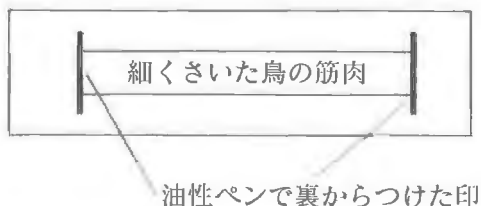 細くさいた鳥の筋肉
油性ペンで裏からつけた印